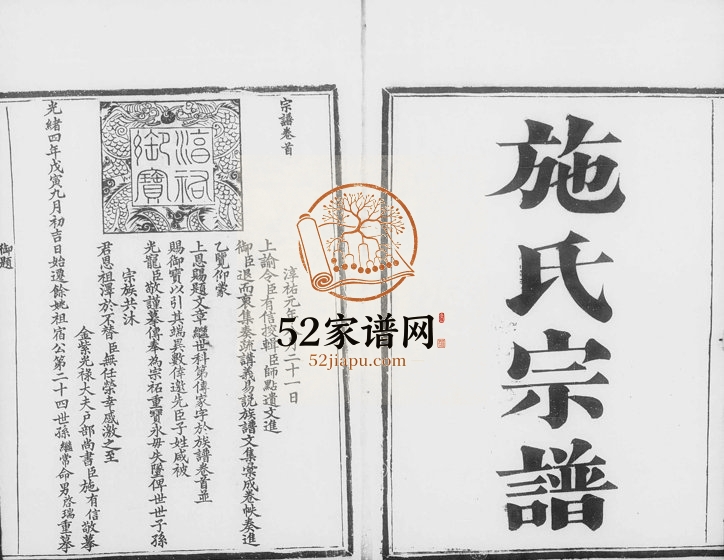 施氏宗譜
宗譜卷首
淳祐御寶
淳祐元
二十一日
上諭令臣有信按輯臣師點遺文進
御臣退而裒集奏疏講義易說族譜文集彙成卷帙奏進
乙覽仰蒙
上恩賜題文章繼世科第傳家字於族譜卷首並
賜御寶以引其端異數偉邀先臣子姓咸被
光寵臣敬謹摹傳奉為宗祏重寶永毋失墜俾世世子孫
宗族共沐
君恩祖澤於不替臣無任榮幸感激之至
金紫光祿大夫戶部尚書臣施有信敬摹
光緒四年戊寅九月初吉日始遷餘姚祖宿公第二十四世孫繼常命男啓瑞重摹
御題
52家谱网
52jiapu.com